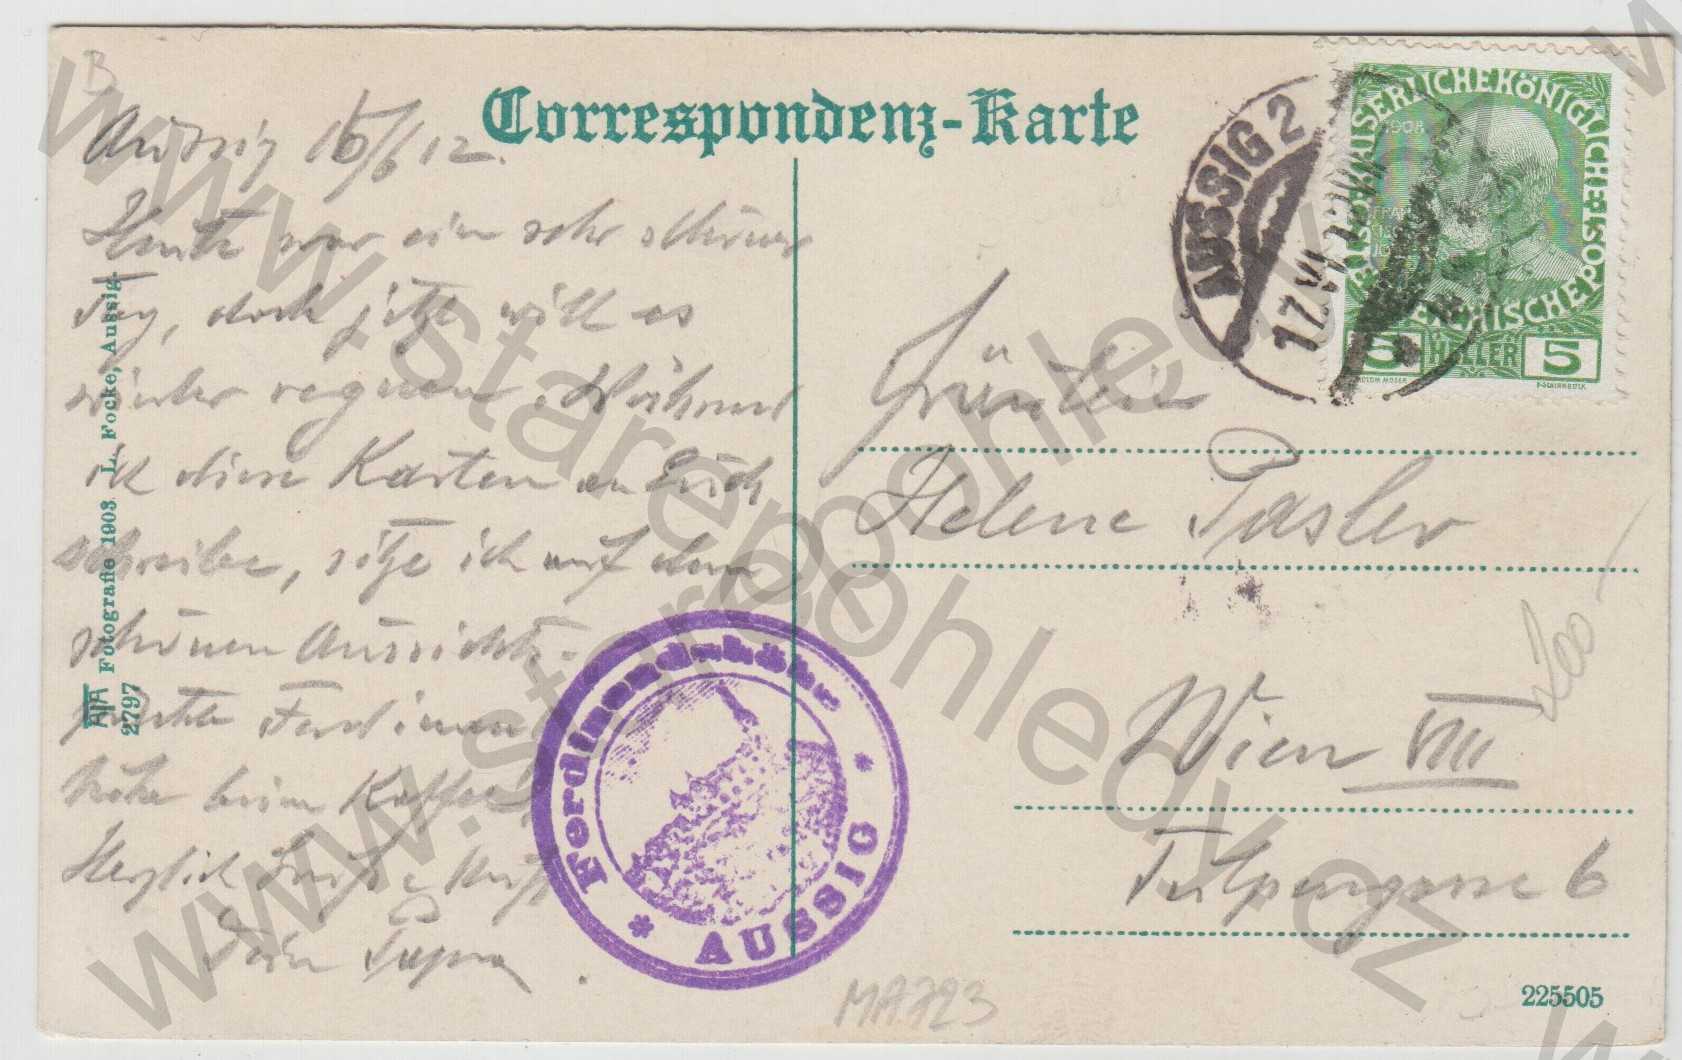 B
Correspondenz-Karte
Aussig 16/6 12.
Heute war ein sehr schöner
Tag, doch jetzt will es
wieder regnen. Während
ich diese Karten an Euch
schreibe, sitze ich auf dem
schönen Aussichts-
punkte Ferdinand
höhe beim Kaffee.
Herzlich Grüßt & Küßt
Dein
AUSSIG 2
17.VI.12
KAISERLICHEKÖNIGLICHE ÖSTERREICHISCHE POST
1908
5 HELLER 5
Fräulein
Helene Pasler
Wien VIII
Tulpengasse 6
200
Ferdinandshöhe
* AUSSIG *
Fotografie 1903 L. Focke, Aussig.
2797
MA723
225505
www.starepohledy.cz
www.starepohledy.cz